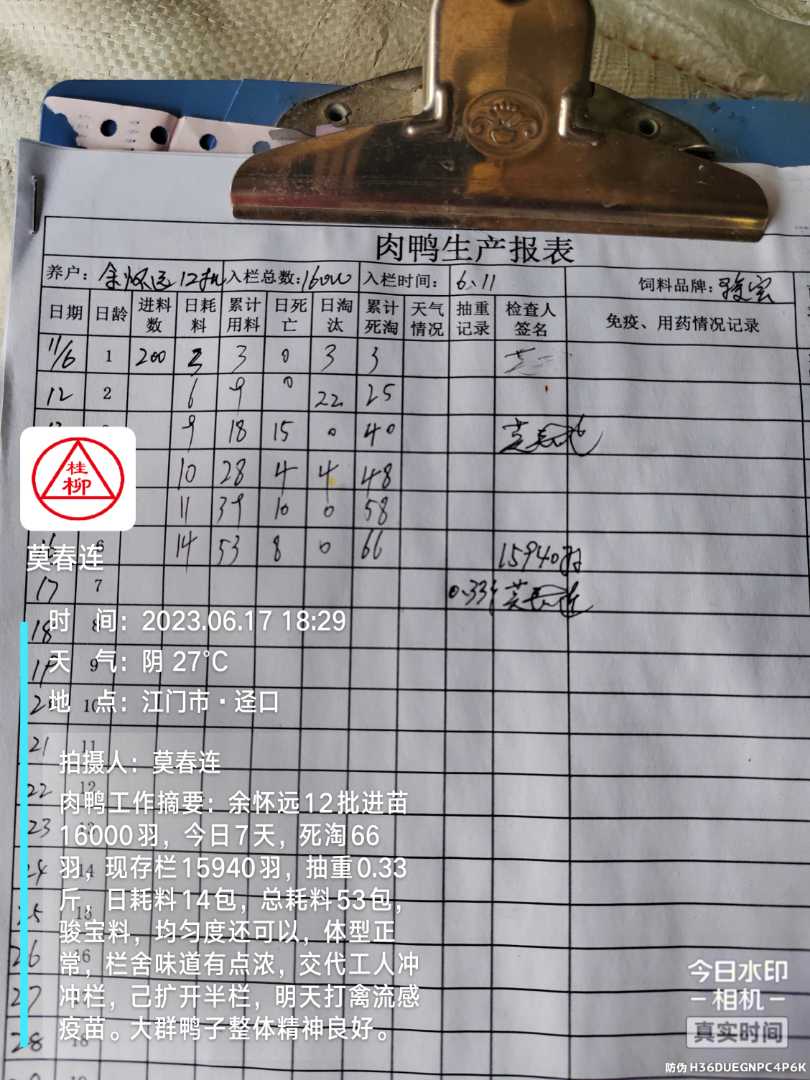 肉鸭生产报表
养户: 余怀远12批 入栏总数:16000 入栏时间: 6.11 饲料品牌: 骏宝
日期 日龄 进料数 日耗料 累计用料 日死亡 日淘汰 累计死淘 天气情况 抽重记录 检查人签名 免疫、用药情况记录
11/6 1 200 3 3 0 3 3
12 2 6 9 0 22 25
9 18 15 0 40 莫春连
10 28 4 4 48
11 39 10 0 58
16 6 14 53 8 0 66 15940羽
17 7 0.33斤 莫春连
18 8
19 9
20 10
21 11
22 12
23
24 14
25
26 16
27
28
桂柳
莫春连
时 间: 2023.06.17 18:29
天 气: 阴 27℃
地 点: 江门市·迳口
拍摄人: 莫春连
肉鸭工作摘要: 余怀远12批进苗
16000羽，今日7天，死淘66
羽，现存栏15940羽，抽重0.33
斤，日耗料14包，总耗料53包，
骏宝料，均匀度还可以，体型正
常，栏舍味道有点浓，交代工人冲
冲栏，己扩开半栏，明天打禽流感
疫苗。大群鸭子整体精神良好。
今日水印
相机
真实时间
防伪 H36DUEGNPC4P6K